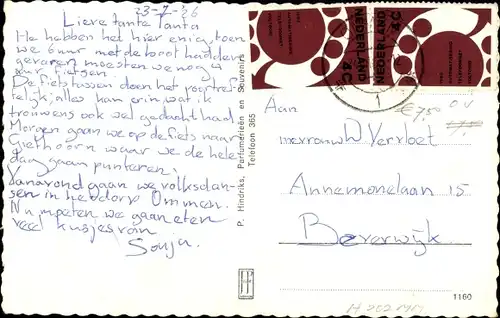 23-7-'66
Lieve tante Tanta
We hebben het hier enig, toen
we 6 uur met de boot hadden
gevaren moesten we nog 4
uur fietsen.
De fietstassen doen het voortref-
felijk, alles kan erin wat ik
trouwens ook wel gedacht had.
Morgen gaan we op de fiets naar
Giethoorn waar we de hele
dag gaan punteren.
Vanavond gaan we volksdan-
sen in het dorp Ommen.
Nu moeten we gaan eten
veel kusjes van
Sonja.
P. Hindriks, Parfumerieën en Souvenirs
Telefoon 365
NEDERLAND
4C
NEDERLAND
4C
€ 7,50
O.V.
Aan
mevrouw Verloet
Annemonelaan 15
Beverwijk
1160